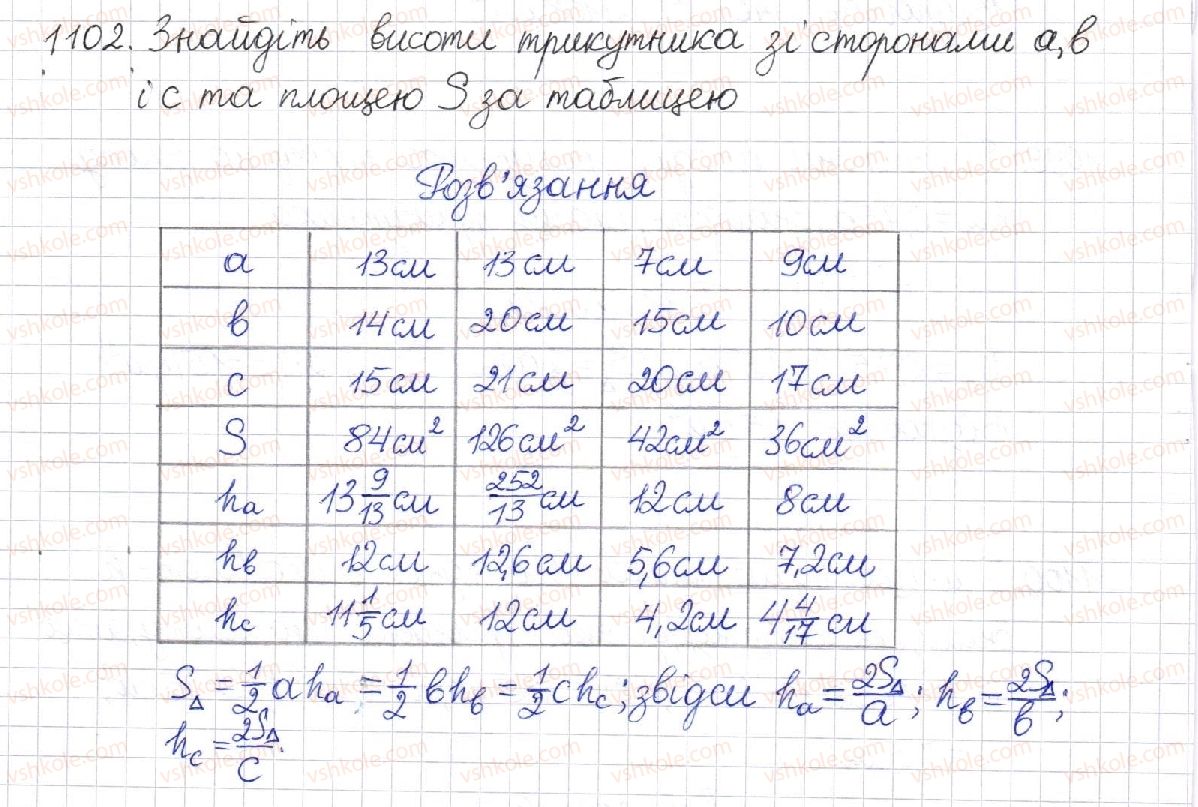 1102. Знайдіть висоти трикутника зі сторонами а, в
і с та площею S за таблицею
Розв'язання
а 13см 13см 7см 9см
в 14см 20см 15см 10см
с 15см 21см 20см 17см
S 84см² 126см² 42см² 36см²
hₐ 13 9/13 см 252/13 см 12см 8см
hв 12см 12,6см 5,6см 7,2см
hс 11 1/5 см 12см 4,2см 4 4/17 см
S∆ = 1/2 ahₐ = 1/2 вhв = 1/2 chс; звідси hₐ = 2S∆/a; hв = 2S∆/в;
hс = 2S∆/c.
vshkole.com